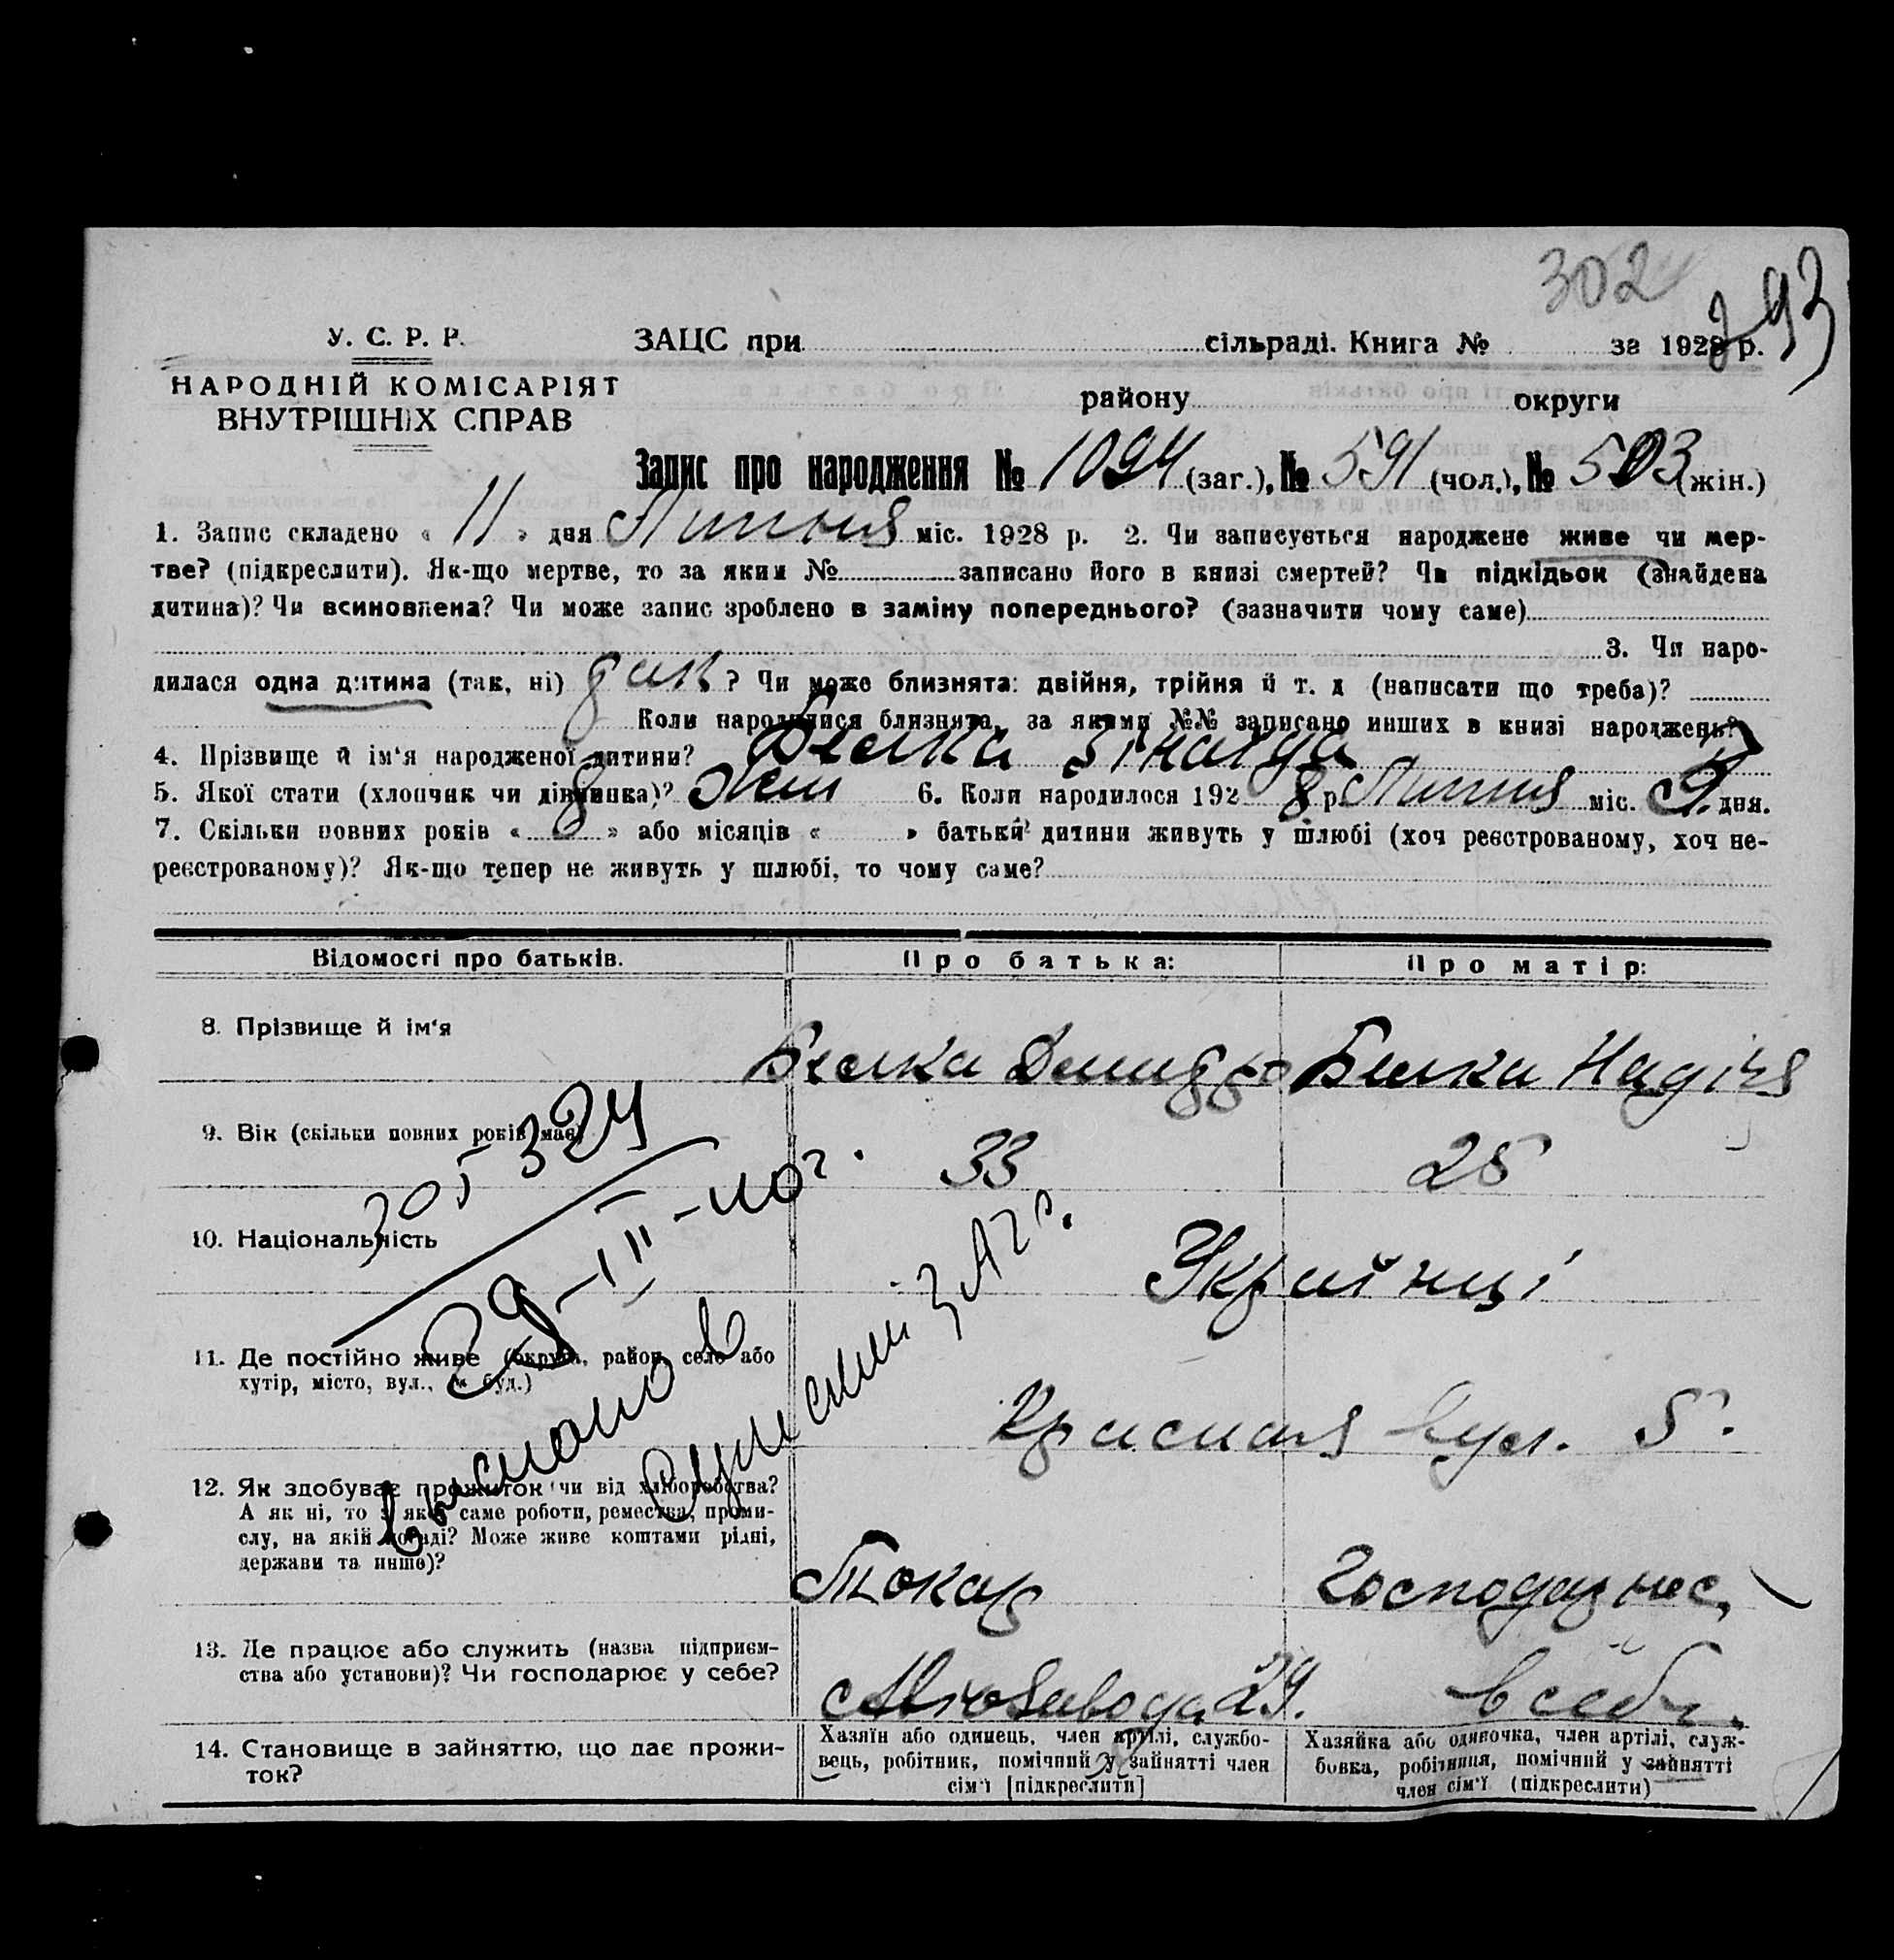 302
293
У. С. Р. Р.
ЗАЦС при сільраді. Книга № за 1928 р.
НАРОДНІЙ КОМІСАРІЯТ
ВНУТРІШНІХ СПРАВ
району округи
Запис про народження № 1094 (заг.), № 591 (чол.), № 503 (жін.)
1. Запис складено « 11 » дня Липня міс. 1928 р. 2. Чи записується народжене живе чи мер-
тве? (підкреслити). Як-що мертве, то за яким № записано його в книзі смертей? Чи підкідьок (знайдена
дитина)? Чи всиновлена? Чи може запис зроблено в заміну попереднього? (зазначити чому саме)
3. Чи наро-
дилася одна дитина (так, ні) ? Чи може близнята: двійня, трійня й т. д (написати що треба)?
Коли народилися близнята, за якими №№ записано инших в книзі народжень?
4. Прізвище й ім'я народженої дитини? Зінаіда
5. Якої стати (хлопчик чи дівчинка)? Жін 6. Коли народилося 192 8 р. Липня міс. 9 дня.
7. Скільки повних років « 8 » або місяців « » батьки дитини живуть у шлюбі (хоч реєстрованому, хоч не-
реєстрованому)? Як-що тепер не живуть у шлюбі, то чому саме?
Відомості про батьків.
Про батька:
Про матір:
8. Прізвище й ім'я
Надія
9. Вік (скільки повних років має)
33
28
305324
29-III-40 г.
10. Національність
Українці
11. Де постійно живе (округа, район, село або
хутір, місто, вул., № буд.)
Красная вул. 5
12. Як здобуває прожиток (чи від хліборобства?
А як ні, то з якої саме роботи, ремества, проми-
слу, на якій посаді? Може живе коштами рідні,
держави та инше)?
Токар
Господарює
13. Де працює або служить (назва підприєм-
ства або установи)? Чи господарює у себе?
в себе.
14. Становище в зайняттю, що дає прожи-
ток?
Хазяїн або одинець, член артілі, службо-
вець, робітник, помічний у зайнятті член
сім'ї [підкреслити]
Хазяйка або одиночка, член артілі, служ-
бовка, робітниця, помічний у зайнятті
член сім'ї (підкреслити)